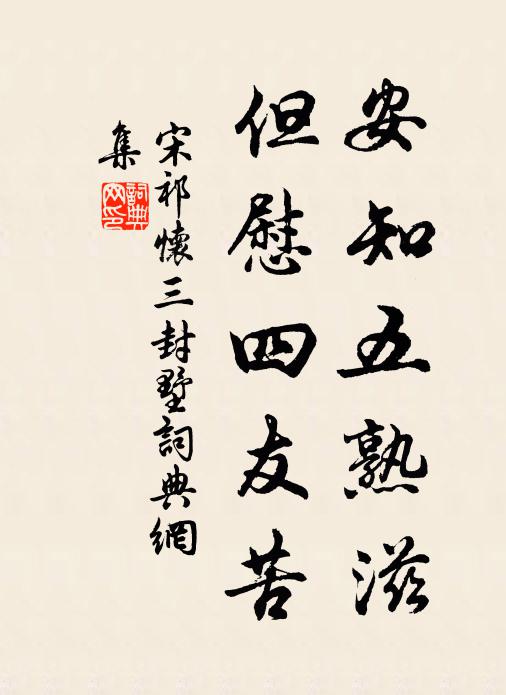 安知五熟滋
但慰四友苦
宋祁懷三封墅詞典網
集
詞典网印